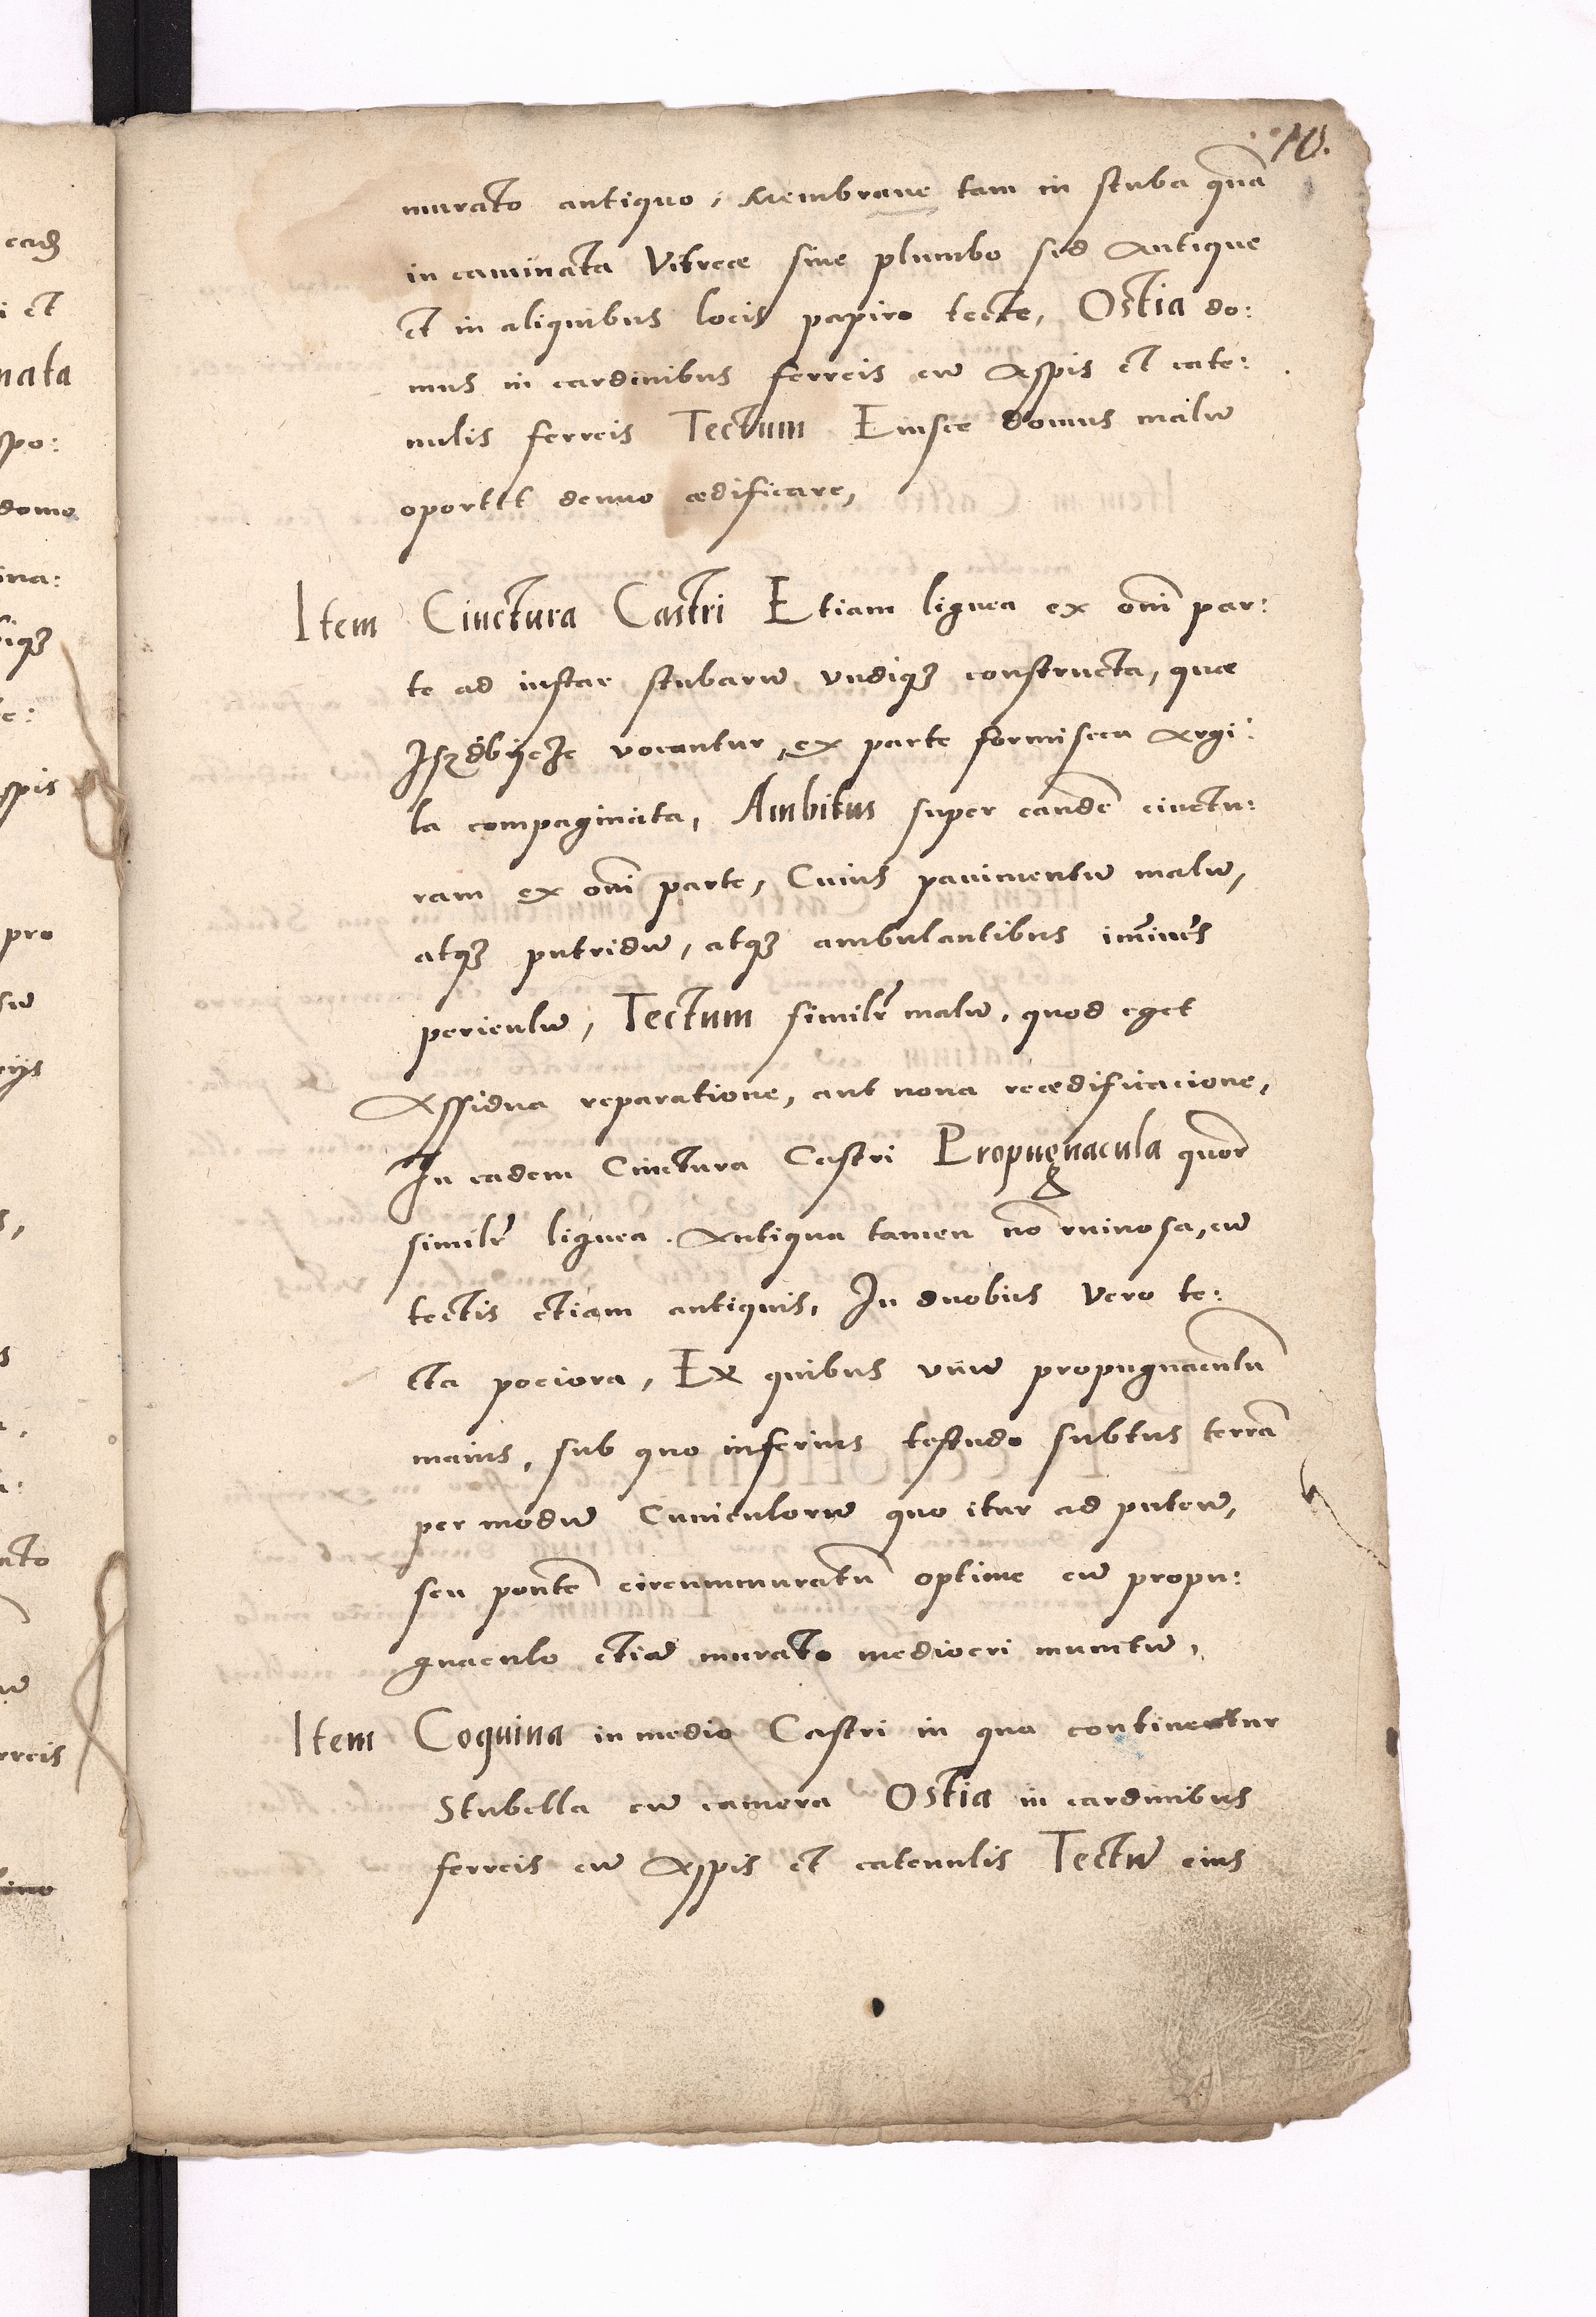 10.
murato antiquo, Membrane tam in stuba quā
in caminata Vitreæ sine plumbo sed Antique
et in aliquibus locis papiro tecte, Ostia do:
mus in cardinibus ferreis cū Asspis et cate:
nulis ferreis Tectum Eiusce domus malū
oportet denuo ædificare,
Item Cinctura Castri Etiam lignea ex om̄i par:
te ad instar stubarū, vndiqꝫ constructa, quæ
vocantur, ex parte forinseca Argi:
la compaginata, Ambitus super eandē cinctu:
ram ex om̄i parte, Cuius pauimentū malū,
atqꝫ putridū, atqꝫ ambulantibus im̄inēs
periculū, Tectum similr̄ malū, quod eget
Assidua reparatione, aut noua reædificacione,
In eadem Cinctura Castri Propugnacula quor
similr̄ lignea. Antiqua tamen nō ruinosa, cū
tectis etiam antiquis, In duobus Vero te:
cta pociora, Ex quibus vnū propugnaculū
maius, sub quo inferius testudo subtus terrā
per modū Cuniculorū quo itur ad puteū,
seu pontē circummuratū optime cū propu:
gnaculo etiā murato mediocri munitū,
Item Coquina in medio Castri in qua continentur
Stubella cū camera Ostia in cardinibus
ferreis cū Asspis et catenulis Tectū eius